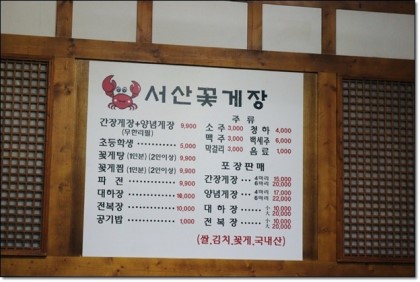 서산꽃게장
간장게장+양념게장 9,900
(무한리필)
초등학생 5,000
꽃게탕 (1인분) (2인이상) 9,900
꽃게찜 (1인분) (2인이상) 9,900
파 전 9,900
대하장 10,000
전복장 10,000
공기밥 1,000
주 류
소 주 3,000 청 하 4,000
맥 주 3,000 백세주 6,000
막걸리 3,000 음 료 1,000
포장판매
간장게장 4마리 15,000
6마리 20,000
양념게장 4마리 17,000
6마리 22,000
대 하 장 小 10,000
大 20,000
전 복 장 小 10,000
大 20,000
(쌀,김치,꽃게,국내산)